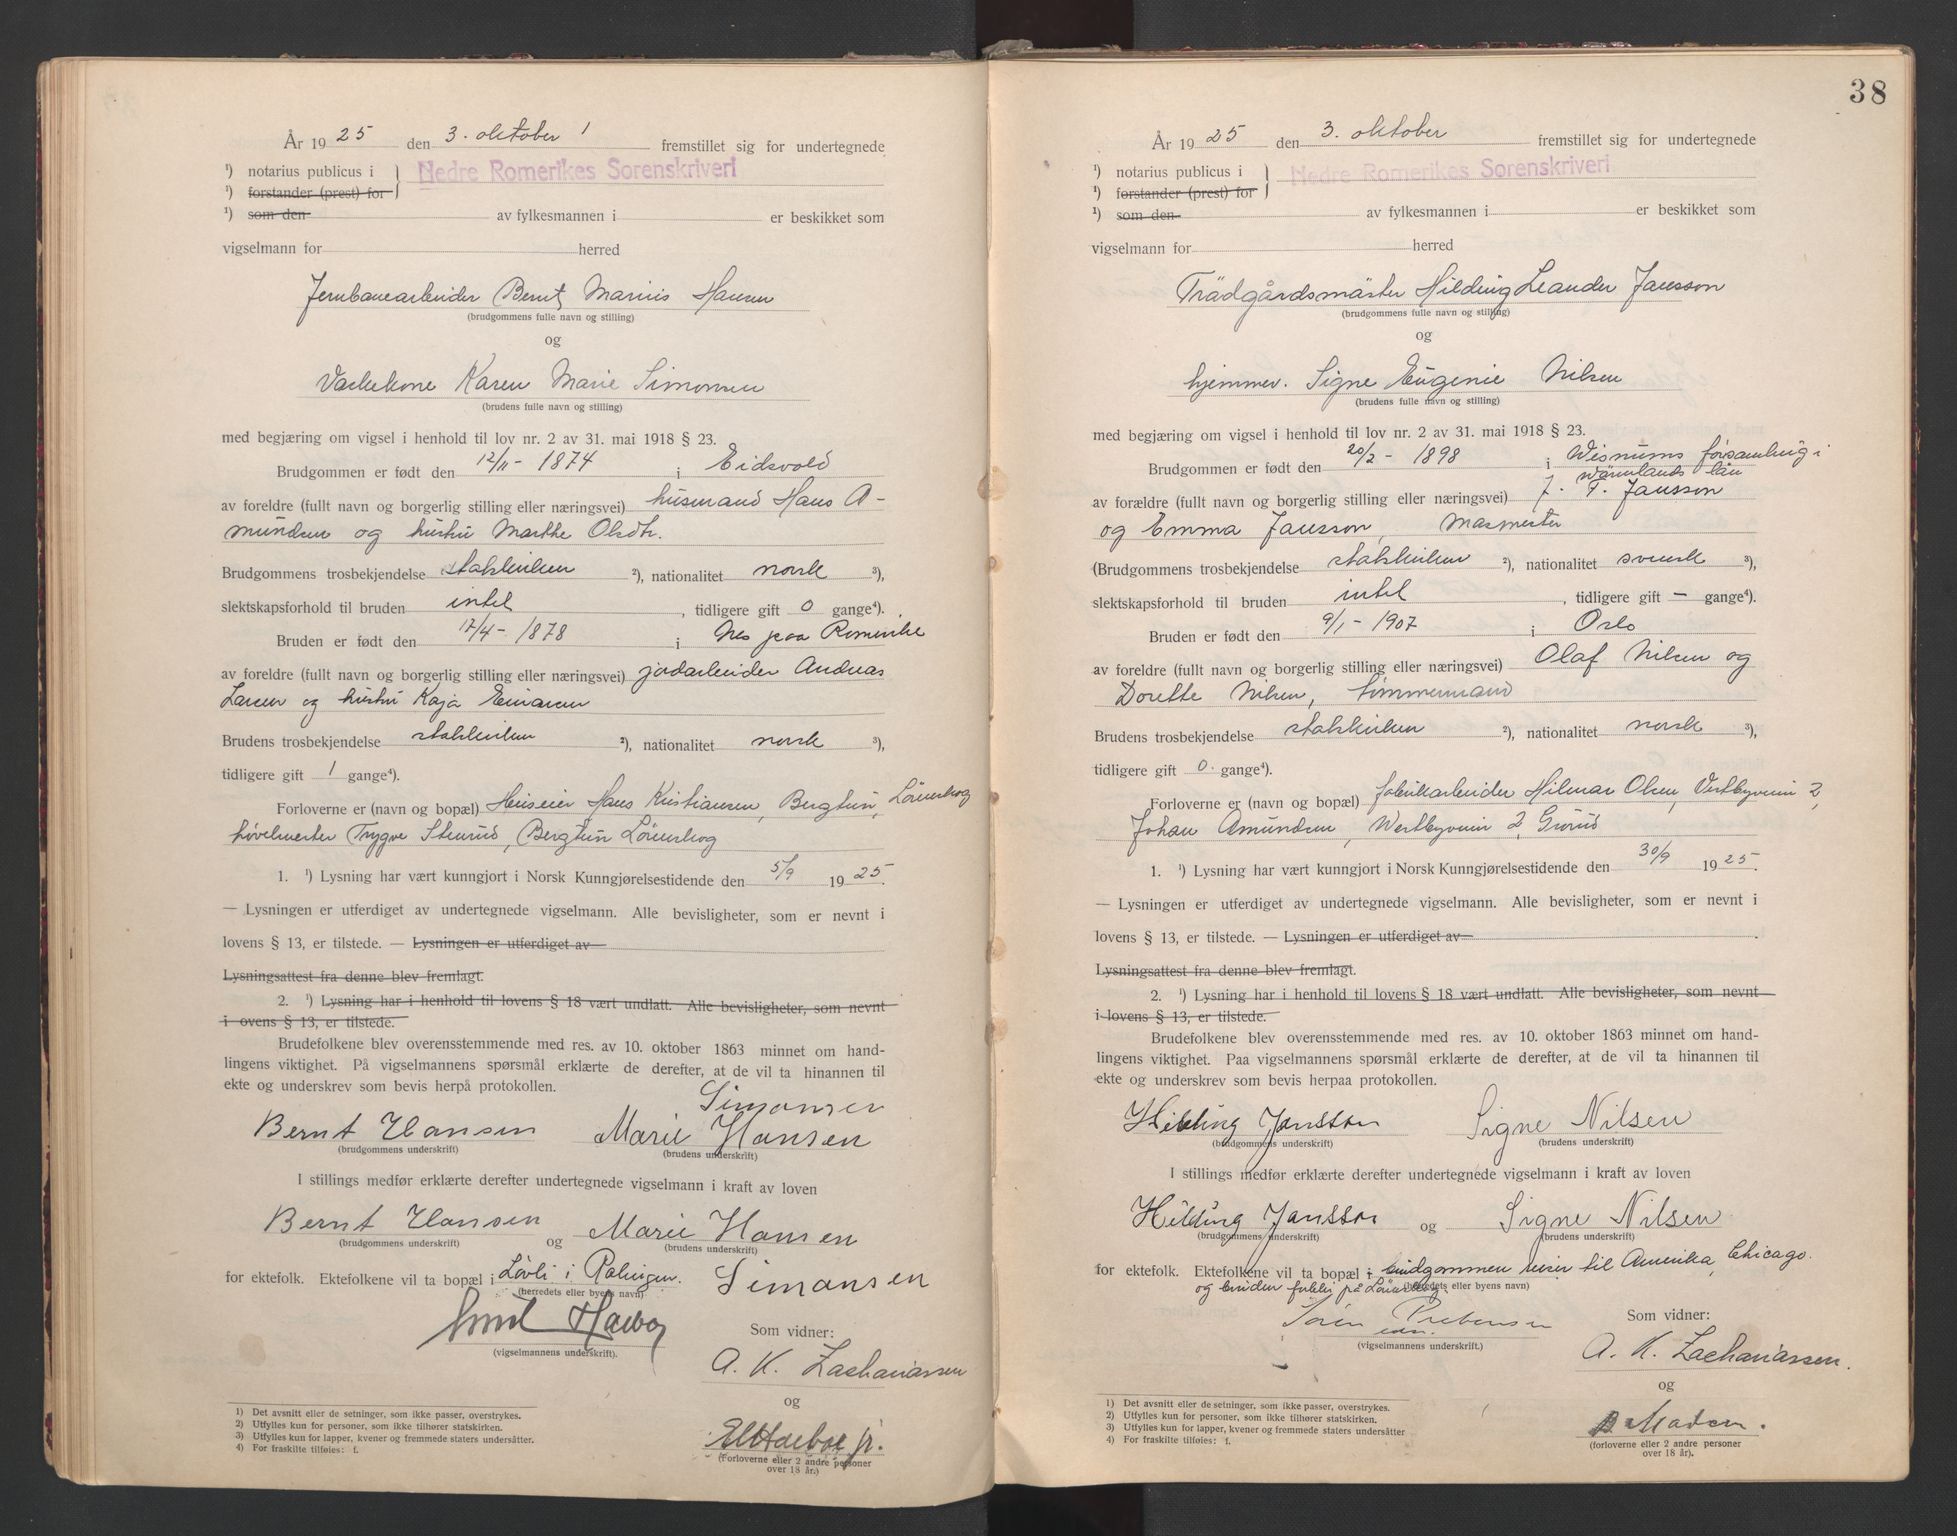 År 1925 den 3. oktober 1 fremstillet sig for undertegnede
¹) notarius publicus i } Nedre Romerikes Sorenskriveri
¹) forstander (prest) for
¹) som den av fylkesmannen i er beskikket som
vigselmann for herred
Jernbanearbeider Bernt Marius Hansen
(brudgommens fulle navn og stilling)
og
Vaskekone Karen Marie Simonsen
(brudens fulle navn og stilling)
med begjæring om vigsel i henhold til lov nr. 2 av 31. mai 1918 § 23.
Brudgommen er født den 12/11 - 1874 i Eidsvold
av foreldre (fullt navn og borgerlig stilling eller næringsvei) husmand Hans A-
mundsen og hustru Marthe Olsdtr.
Brudgommens trosbekjendelse statskirken ²), nationalitet norsk ³),
slektskapsforhold til bruden intet , tidligere gift 0 gange⁴).
Bruden er født den 17/4 - 1878 i Nes paa Romerike
av foreldre (fullt navn og borgerlig stilling eller næringsvei) jordarbeider Andreas
Larsen og hustru Kaja Einarsen
Brudens trosbekjendelse statskirken ²), nationalitet norsk ³),
tidligere gift 1 gange⁴).
Forloverne er (navn og bopæl) Huseier Hans Kristiansen, Bergtun, Lörenskog
hövelmester Trygve Stensrud, Bergtun Lörenskog
1. ¹) Lysning har vært kunngjort i Norsk Kunngjørelsestidende den 5/9 1925.
— Lysningen er utferdiget av undertegnede vigselmann. Alle bevisligheter, som er nevnt i
lovens § 13, er tilstede. — Lysningen er utferdiget av
Lysningsattest fra denne blev fremlagt.
2. ¹) Lysning har i henhold til lovens § 18 vært undlatt. Alle bevisligheter, som nevnt
i ovens § 13, er tilstede.
Brudefolkene blev overensstemmende med res. av 10. oktober 1863 minnet om hand-
lingens viktighet. På vigselmannens spørsmål erklærte de derefter, at de vil ta hinannen til
ekte og underskrev som bevis herpå protokollen.
Simonsen
Bernt Hansen Marie Hansen
(brudgommens underskrift) (brudens underskrift)
I stillings medfør erklærte derefter undertegnede vigselmann i kraft av loven
Bernt Hansen og Marie Hansen
(brudgommens underskrift) (brudens underskrift)
for ektefolk. Ektefolkene vil ta bopæl i Lövli i Rælingen. Simonsen
(herredets eller byens navn)
(vigselmannens underskrift).
Som vidner:
A. K. Zachariassen
og
(Forloverne eller 2 andre personer
over 18 år.)
1) Det avsnitt eller de setninger, som ikke passer, overstrykes.
2) Utfylles kun for personer, som ikke tilhører statskirken.
3) Utfylles kun for lapper, kvener og fremmede staters undersåtter.
4) For fraskilte tilføies: f.
38
År 1925 den 3. oktober fremstillet sig for undertegnede
¹) notarius publicus i } Nedre Romerikes Sorenskriveri
¹) forstander (prest) for
¹) som den av fylkesmannen i er beskikket som
vigselmann for herred
Trädgårdsmäster Hilding Leander Jansson
(brudgommens fulle navn og stilling)
og
hjemmev. Signe Eugenie Nilsen
(brudens fulle navn og stilling)
med begjæring om vigsel i henhold til lov nr. 2 av 31. mai 1918 § 23.
Brudgommen er født den 20/2 - 1898 i Wisnums församling i
Wärmlands län
av forældre (fullt navn og borgerlig stilling eller næringsvei) J. F. Jansson
og Emma Jansson, Masmester
(Brudgommens trosbekjendelse statskirken ²), nationalitet svensk ³),
slektskapsforhold til bruden intet , tidligere gift — gange⁴).
Bruden er født den 9/1 - 1907 i Oslo
av foreldre (fullt navn og borgerlig stilling eller næringsvei) Olaf Nilsen og
Dorette Nilsen, tömmermand
Brudens trosbekjendelse statskirken ²), nationalitet norsk ³),
tidligere gift 0. gange⁴).
Forloverne er (navn og bopæl) fabrikarbeider Hilmar Olsen, Vestbyveien 2,
Johan Amundsen, Westbyveien 2, Grorud
1. ¹) Lysning har vært kunngjort i Norsk Kunngjørelsestidende den 30/9 1925.
— Lysningen er utferdiget av undertegnede vigselmann. Alle bevisligheter, som er nevnt i
lovens § 13, er tilstede. — Lysningen er utferdiget av
Lysningsattest fra denne blev fremlagt.
2. ¹) Lysning har i henhold til lovens § 18 vært undlatt. Alle bevisligheter, som nevnt
i lovens § 13, er tilstede.
Brudefolkene blev overensstemmende med res. av 10. oktober 1863 minnet om hand-
lingens viktighet. Paa vigselmannens spørsmål erklærte de derefter, at de vil ta hinannen til
ekte og underskrev som bevis herpaa protokollen.
Hilding Jansson Signe Nilsen
(brudgommens underskrift) (brudens underskrift)
I stillings medfør erklærte derefter undertegnede vigselmann i kraft av loven
Hilding Jansson og Signe Nilsen
(brudgommens underskrift) (brudens underskrift)
for ektefolk. Ektefolkene vil ta bopæl i brudgommen reiser til Amerika, Chicago.
og bruden forblir på Lörenskog. (herredets eller byens navn)
Sören Prebensen
(vigselmannens underskrift.)
Som vidner:
A. K. Zachariassen.
og
(forloverne eller 2 andre personer
over 18 år).
1) Det avsnitt eller de setninger, som ikke passer, overstrykes.
2) Utfylles kun for personer, som ikke tilhører statskirken.
3) Utfylles kun for lapper, kvener og fremmede staters undersåtter
4) For fraskilte tilføies: f.